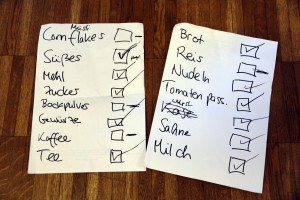 Müsli
Cornflakes
Süßes
Mehl
Zucker
Backpulver
Gewürze
Kaffee
Tee
Brot
Reis
Nudeln
Tomaten pass.
Wurst
Sahne
Milch